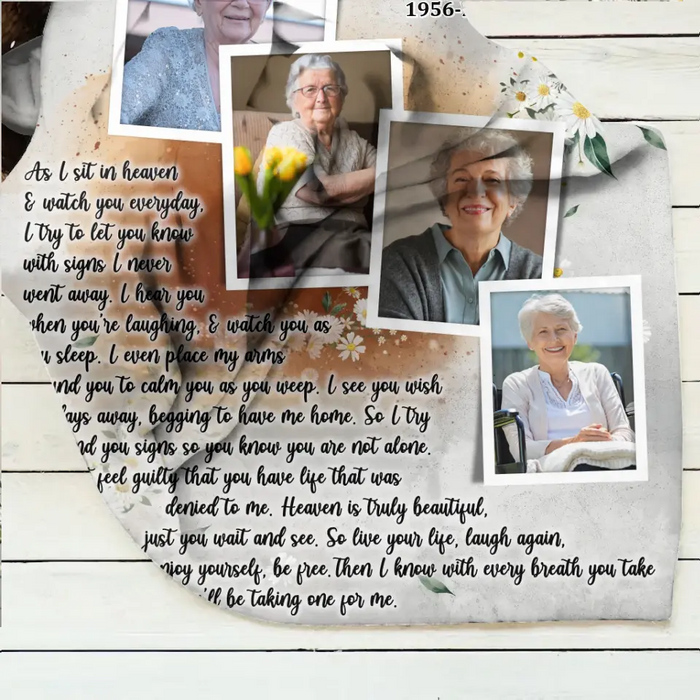 1956-
As I sit in heaven
& watch you everyday,
I try to let you know
with signs I never
went away. I hear you
when you're laughing, & watch you as
u sleep. I even place my arms
nd you to calm you as you weep. I see you wish
ays away, begging to have me home. So I try
nd you signs so you know you are not alone.
feel guilty that you have life that was
denied to me. Heaven is truly beautiful,
just you wait and see. So live your life, laugh again,
njoy yourself, be free. Then I know with every breath you take
'll be taking one for me.